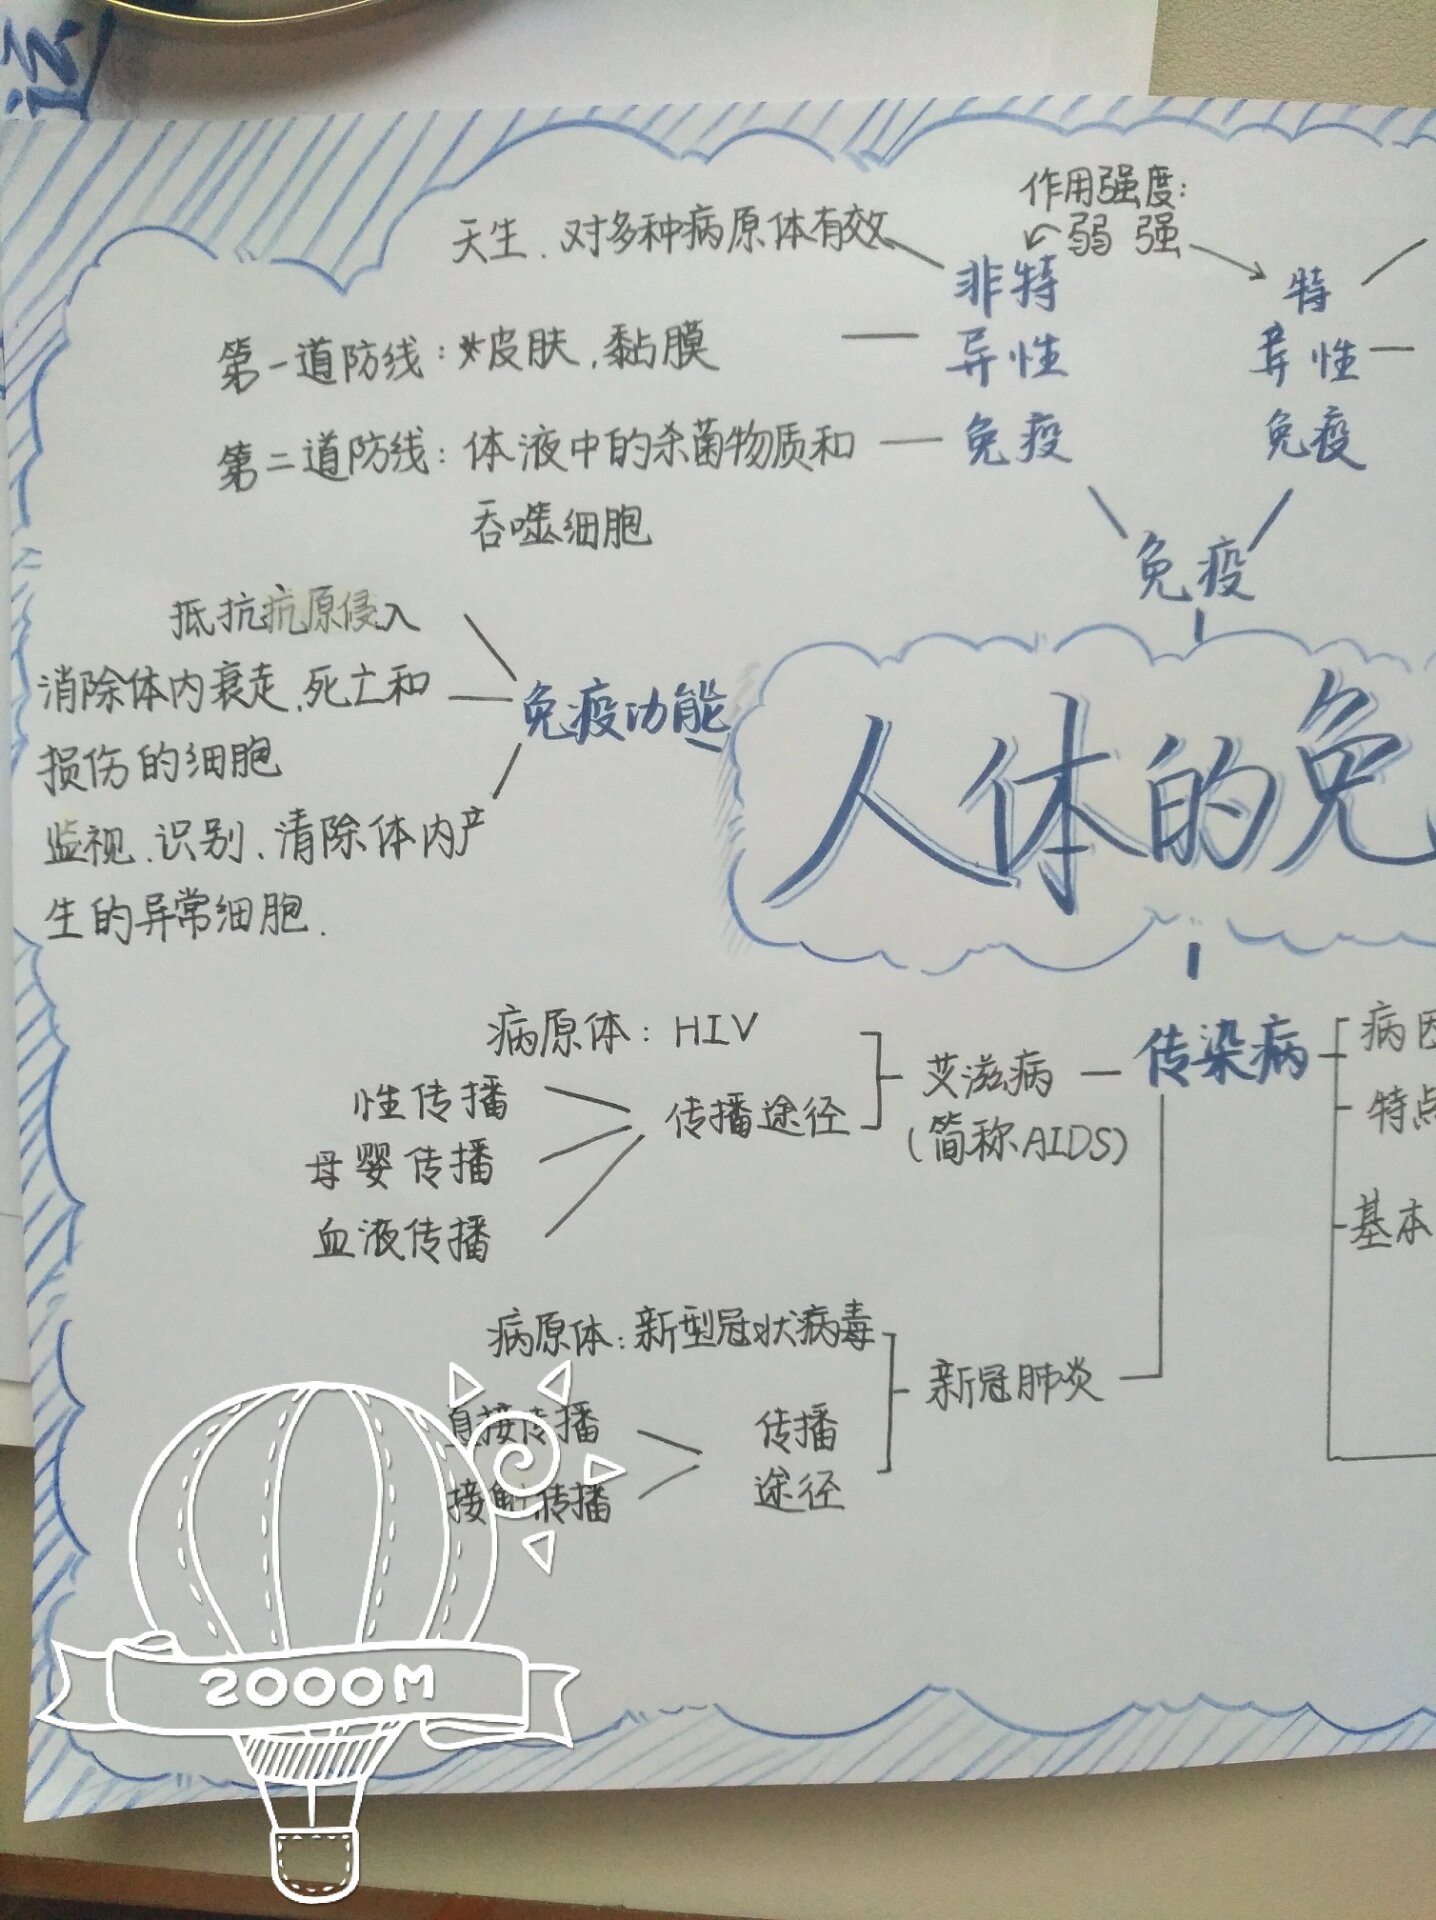 作用强度:
天生、对多种病原体有效
弱 强
非特
异性
免疫
特
异性
免疫
第一道防线:皮肤、黏膜
第二道防线:体液中的杀菌物质和
吞噬细胞
免疫
抵抗抗原侵入
消除体内衰走、死亡和
损伤的细胞
监视、识别、清除体内产
生的异常细胞.
免疫功能
人体的免
病原体:HIV
性传播
母婴传播
血液传播
传播途径
艾滋病
(简称AIDS)
传染病
病因
特点
基本
病原体:新型冠状病毒
直接传播
接触传播
传播
途径
新冠肺炎
2000M